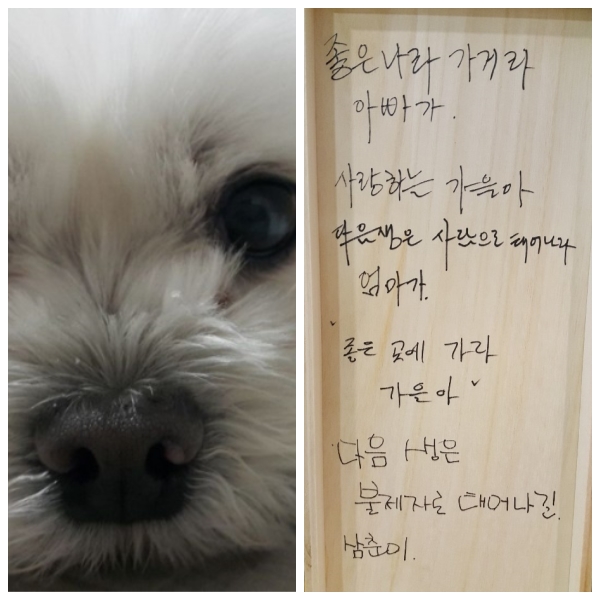 좋은나라 가거라
아빠가.
사랑하는 가을아
다음생은 사람으로 태어나라
엄마가.
"좋은 곳에 가라
가을아"
다음 생은
불제자로 태어나길.
삼춘이.